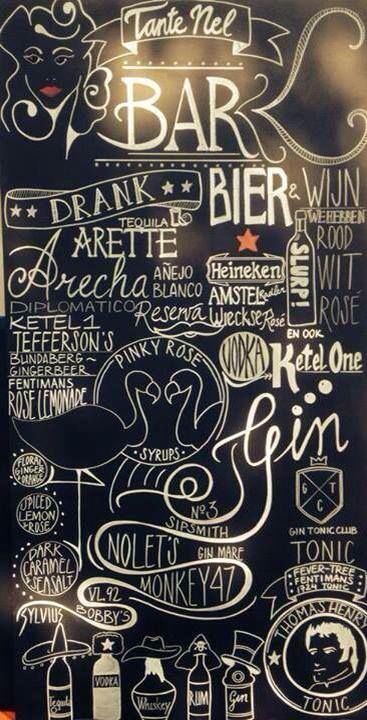 Tante Nel
BAR
DRANK
TEQUILA
ARETTE
Arecha AÑEJO
BLANCO
DIPLOMATICO Reserva
KETEL 1
JEFFERSON'S
BUNDABERG~
GINGERBEER
FENTIMANS
ROSE LEMONADE
BIER & WIJN
WE HEBBEN
ROOD
WIT
ROSÉ
SLURP!
Heineken
AMSTEL Radler
Wieckse Rosé
EN OOK
VODKA Ketel One
PINKY ROSE
SYRUPS
FLORAL
GINGER
& ORANGE
SPICED
LEMON
& ROSE
DARK
CARAMEL
& SEASALT
Gin
Nº3
SIPSMITH
NOLET'S GIN MARE
MONKEY 47
VL.92
BOBBY'S
SYLVIUS
G T
C
GIN TONIC CLUB
TONIC
FEVER-TREE
FENTIMANS
1724 TONIC
THOMAS HENRY
TONIC
Tequila
VODKA
Whiskey
RUM
Gin